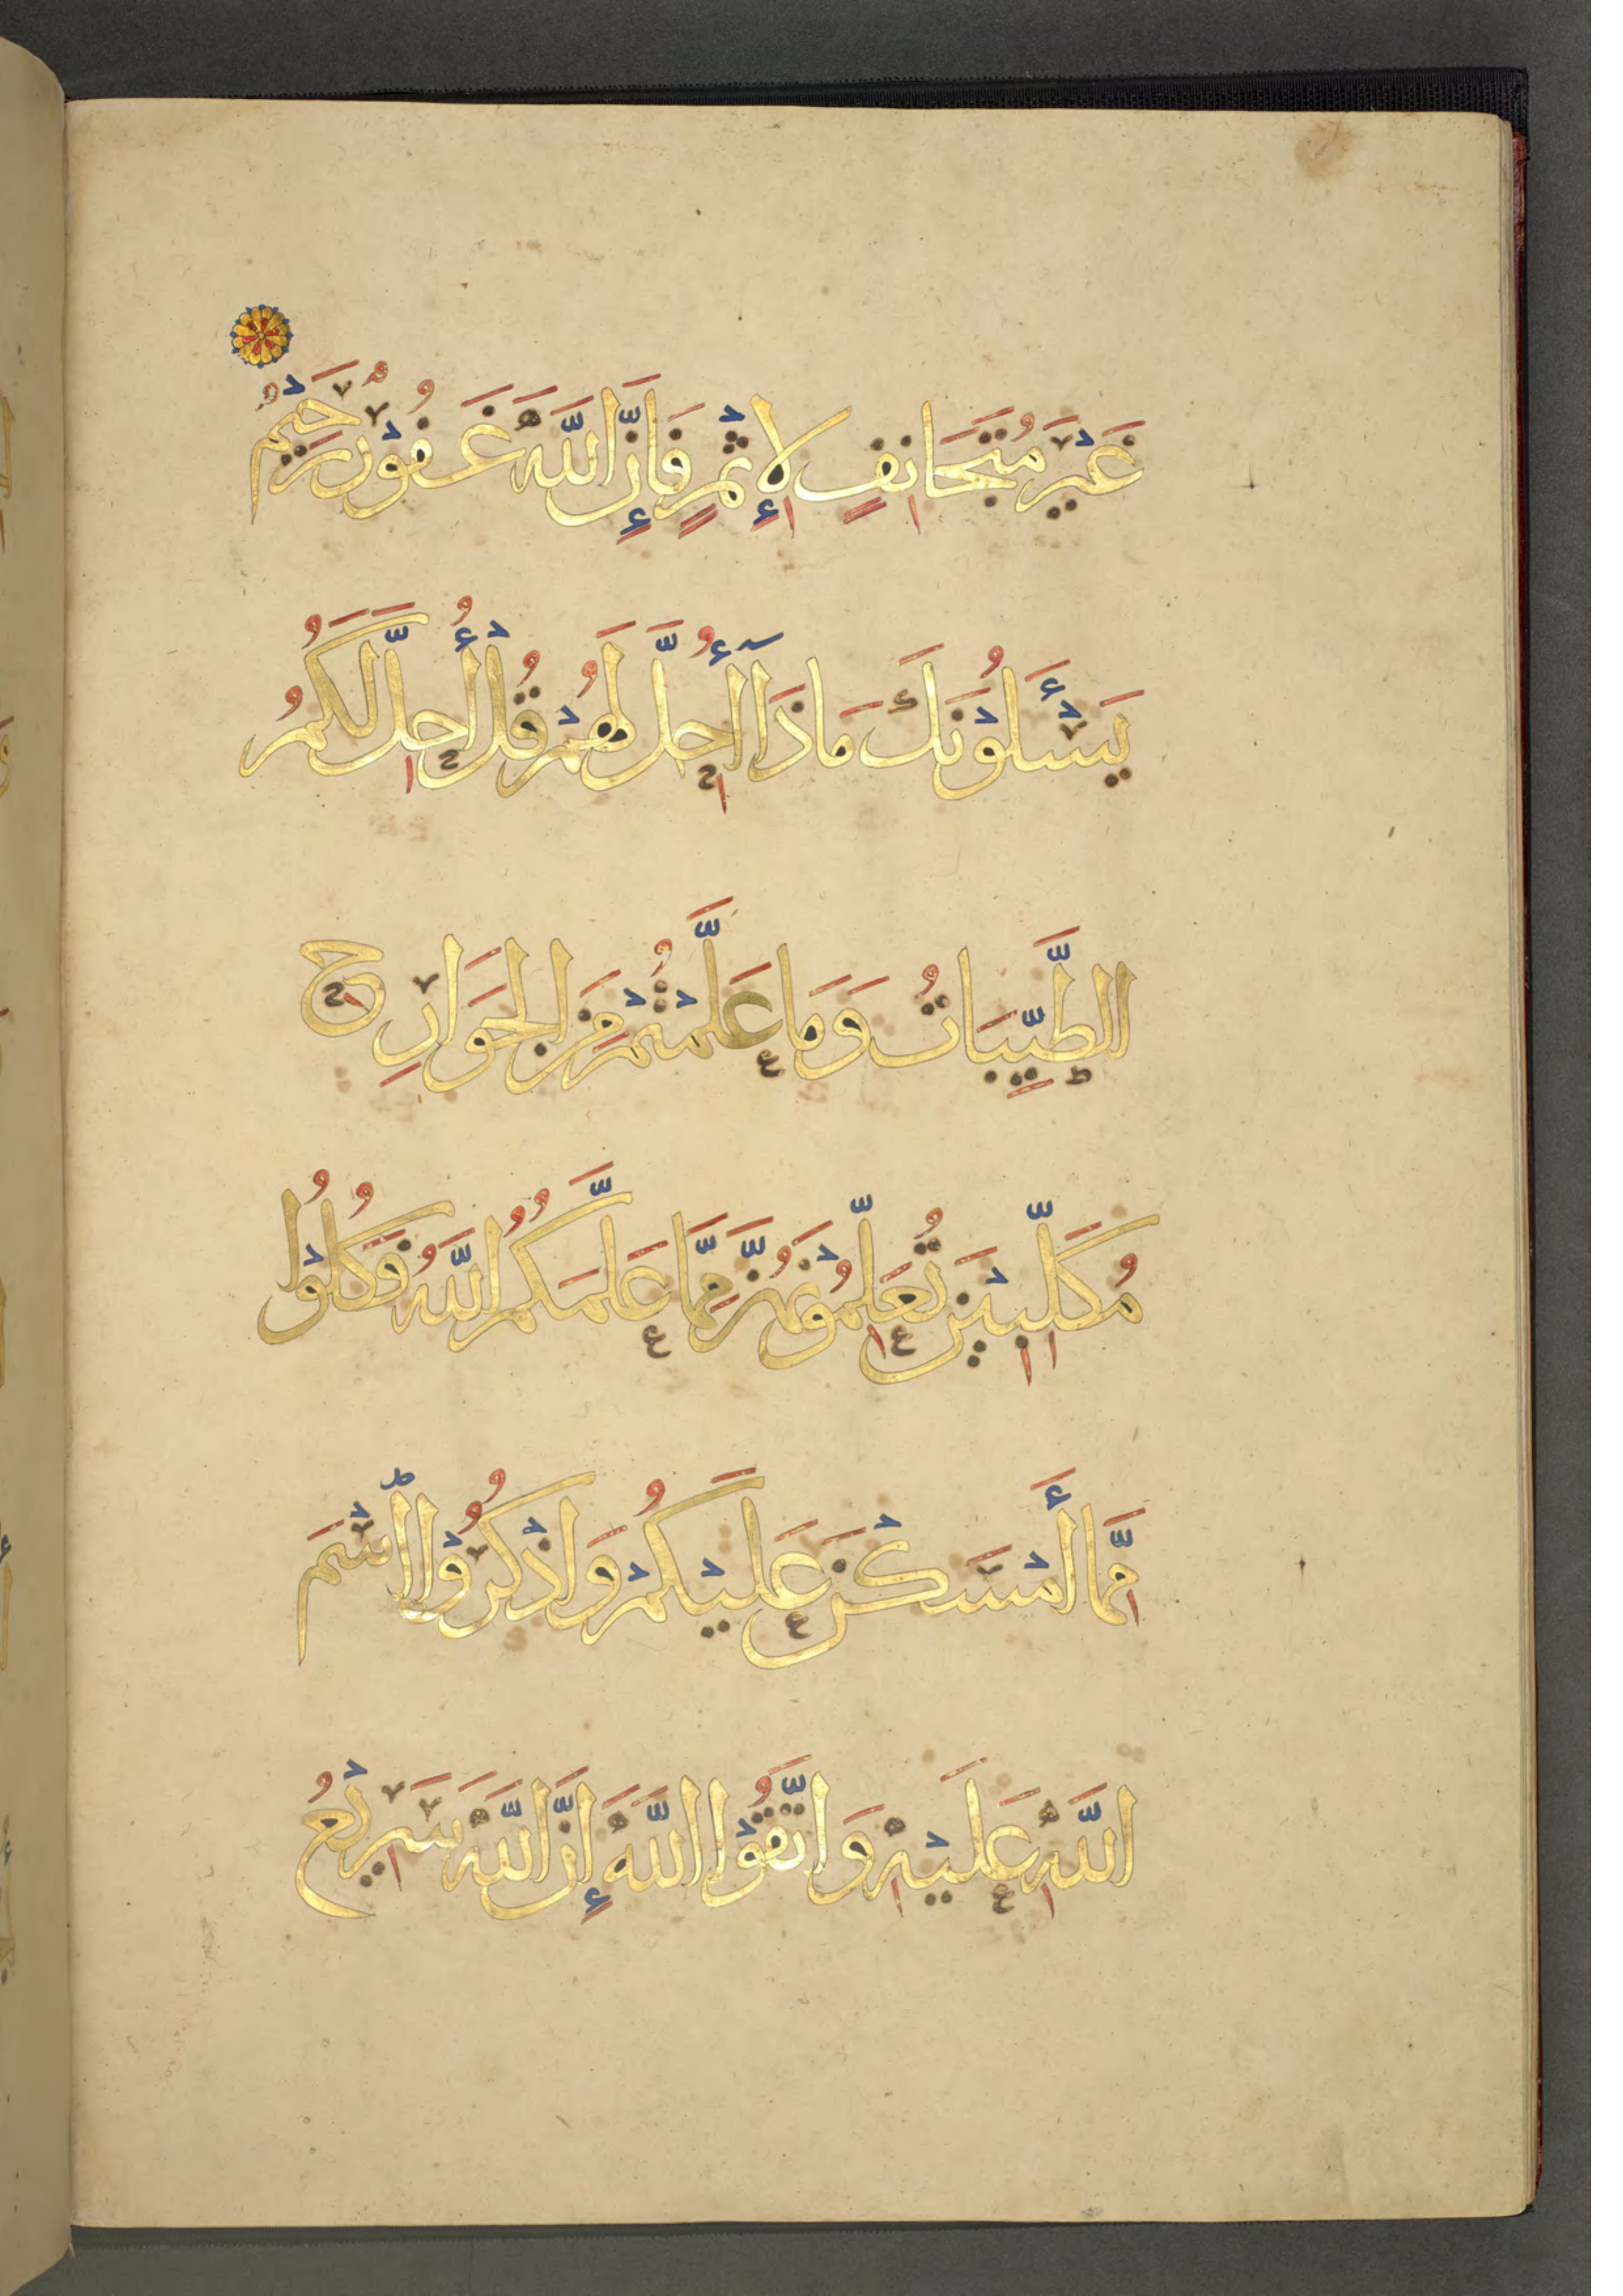 غَيْرَ مُتَجَانِفٍ لِإِثْمٍ فَإِنَّ اللَّهَ غَفُوْرٌ رَحِيْمٌ
يَسْـَٔلُوْنَكَ مَاذَآ أُحِلَّ لَهُمْ قُلْ أُحِلَّ لَكُمُ
الطَّيِّبَاتُ وَمَا عَلَّمْتُمْ مِنَ الْجَوَارِحِ
مُكَلِّبِيْنَ تُعَلِّمُوْنَهُنَّ مِمَّا عَلَّمَكُمُ اللَّهُ فَكُلُوْا
مِمَّا أَمْسَكْنَ عَلَيْكُمْ وَاذْكُرُوْا اسْمَ
اللَّهِ عَلَيْهِ وَاتَّقُوْا اللَّهَ إِنَّ اللَّهَ سَرِيْعُ